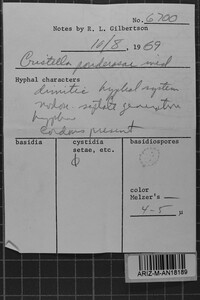 No. 6700
Notes by R. L. Gilbertson
10/8, 1969
Cristella
Hyphal characters
dimitic hyphal system
nodose-septate generative
hyphae
Cordons present
basidia cystidia basidiospores
setae, etc.
φ
color
Melzer's —
4-5 μ
ARIZ-M-AN18189